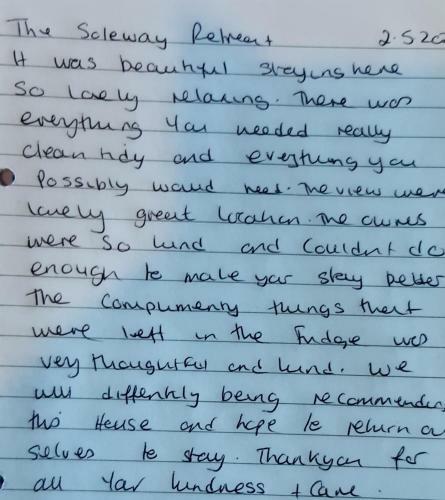 The Soleway Retreat 2.5.20
It was beautiful staying here
So lovely relaxing. There was
everything you needed really
clean tidy and everything you
Possibly would need. The view were
lovely great location. The owners
were so kind and Couldnt do
enough to make your stay better
The Complimenty things that
were left in the Fridge was
very thoughtful and kind. We
will diffenitly being recommending
this House and hope to return our
selves to stay. Thankyou for
all your kindness + Care.